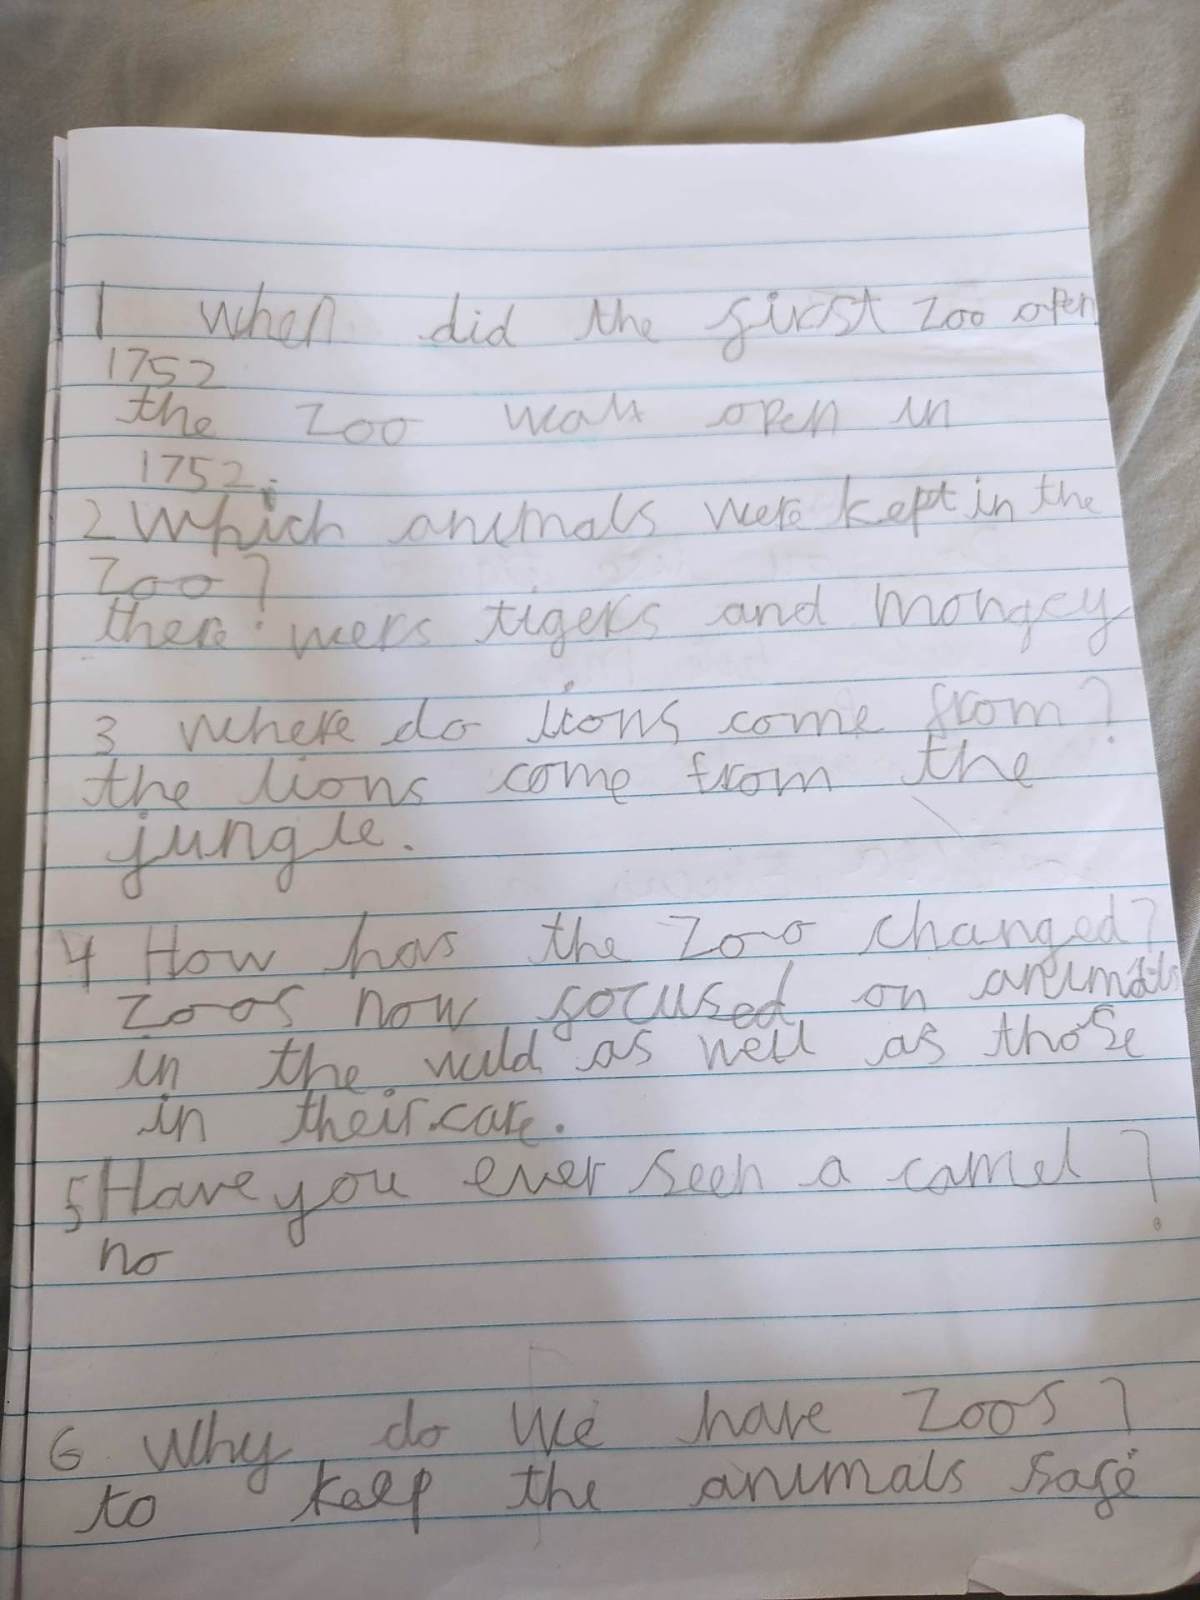 1 When did the first zoo open
1752
the zoo open in
1752.
2 Which animals were kept in the
Zoo?
there wers tigers and mongey
3 where do lions come from?
the lions come from the
jungle.
4 How has the Zoo changed?
Zoos now focused on animals
in the wild as well as those
in their care.
5 Have you ever seen a camel?
no
6 Why do we have Zoos?
to keep the animals safe